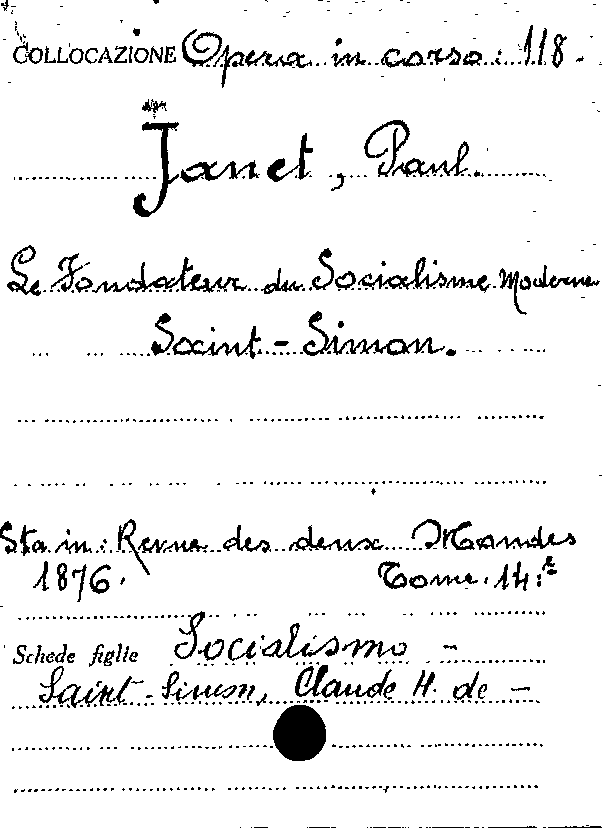 COLLOCAZIONE Opera in corso: 118.
Janet, Paul.
Le Fondateur du Socialisme Moderne
Saint-Simon.
Sta in: Revue des deux Mondes
1876. Tome. 14:e
Schede figlie Socialismo -
Saint-Simon, Claude H. de -